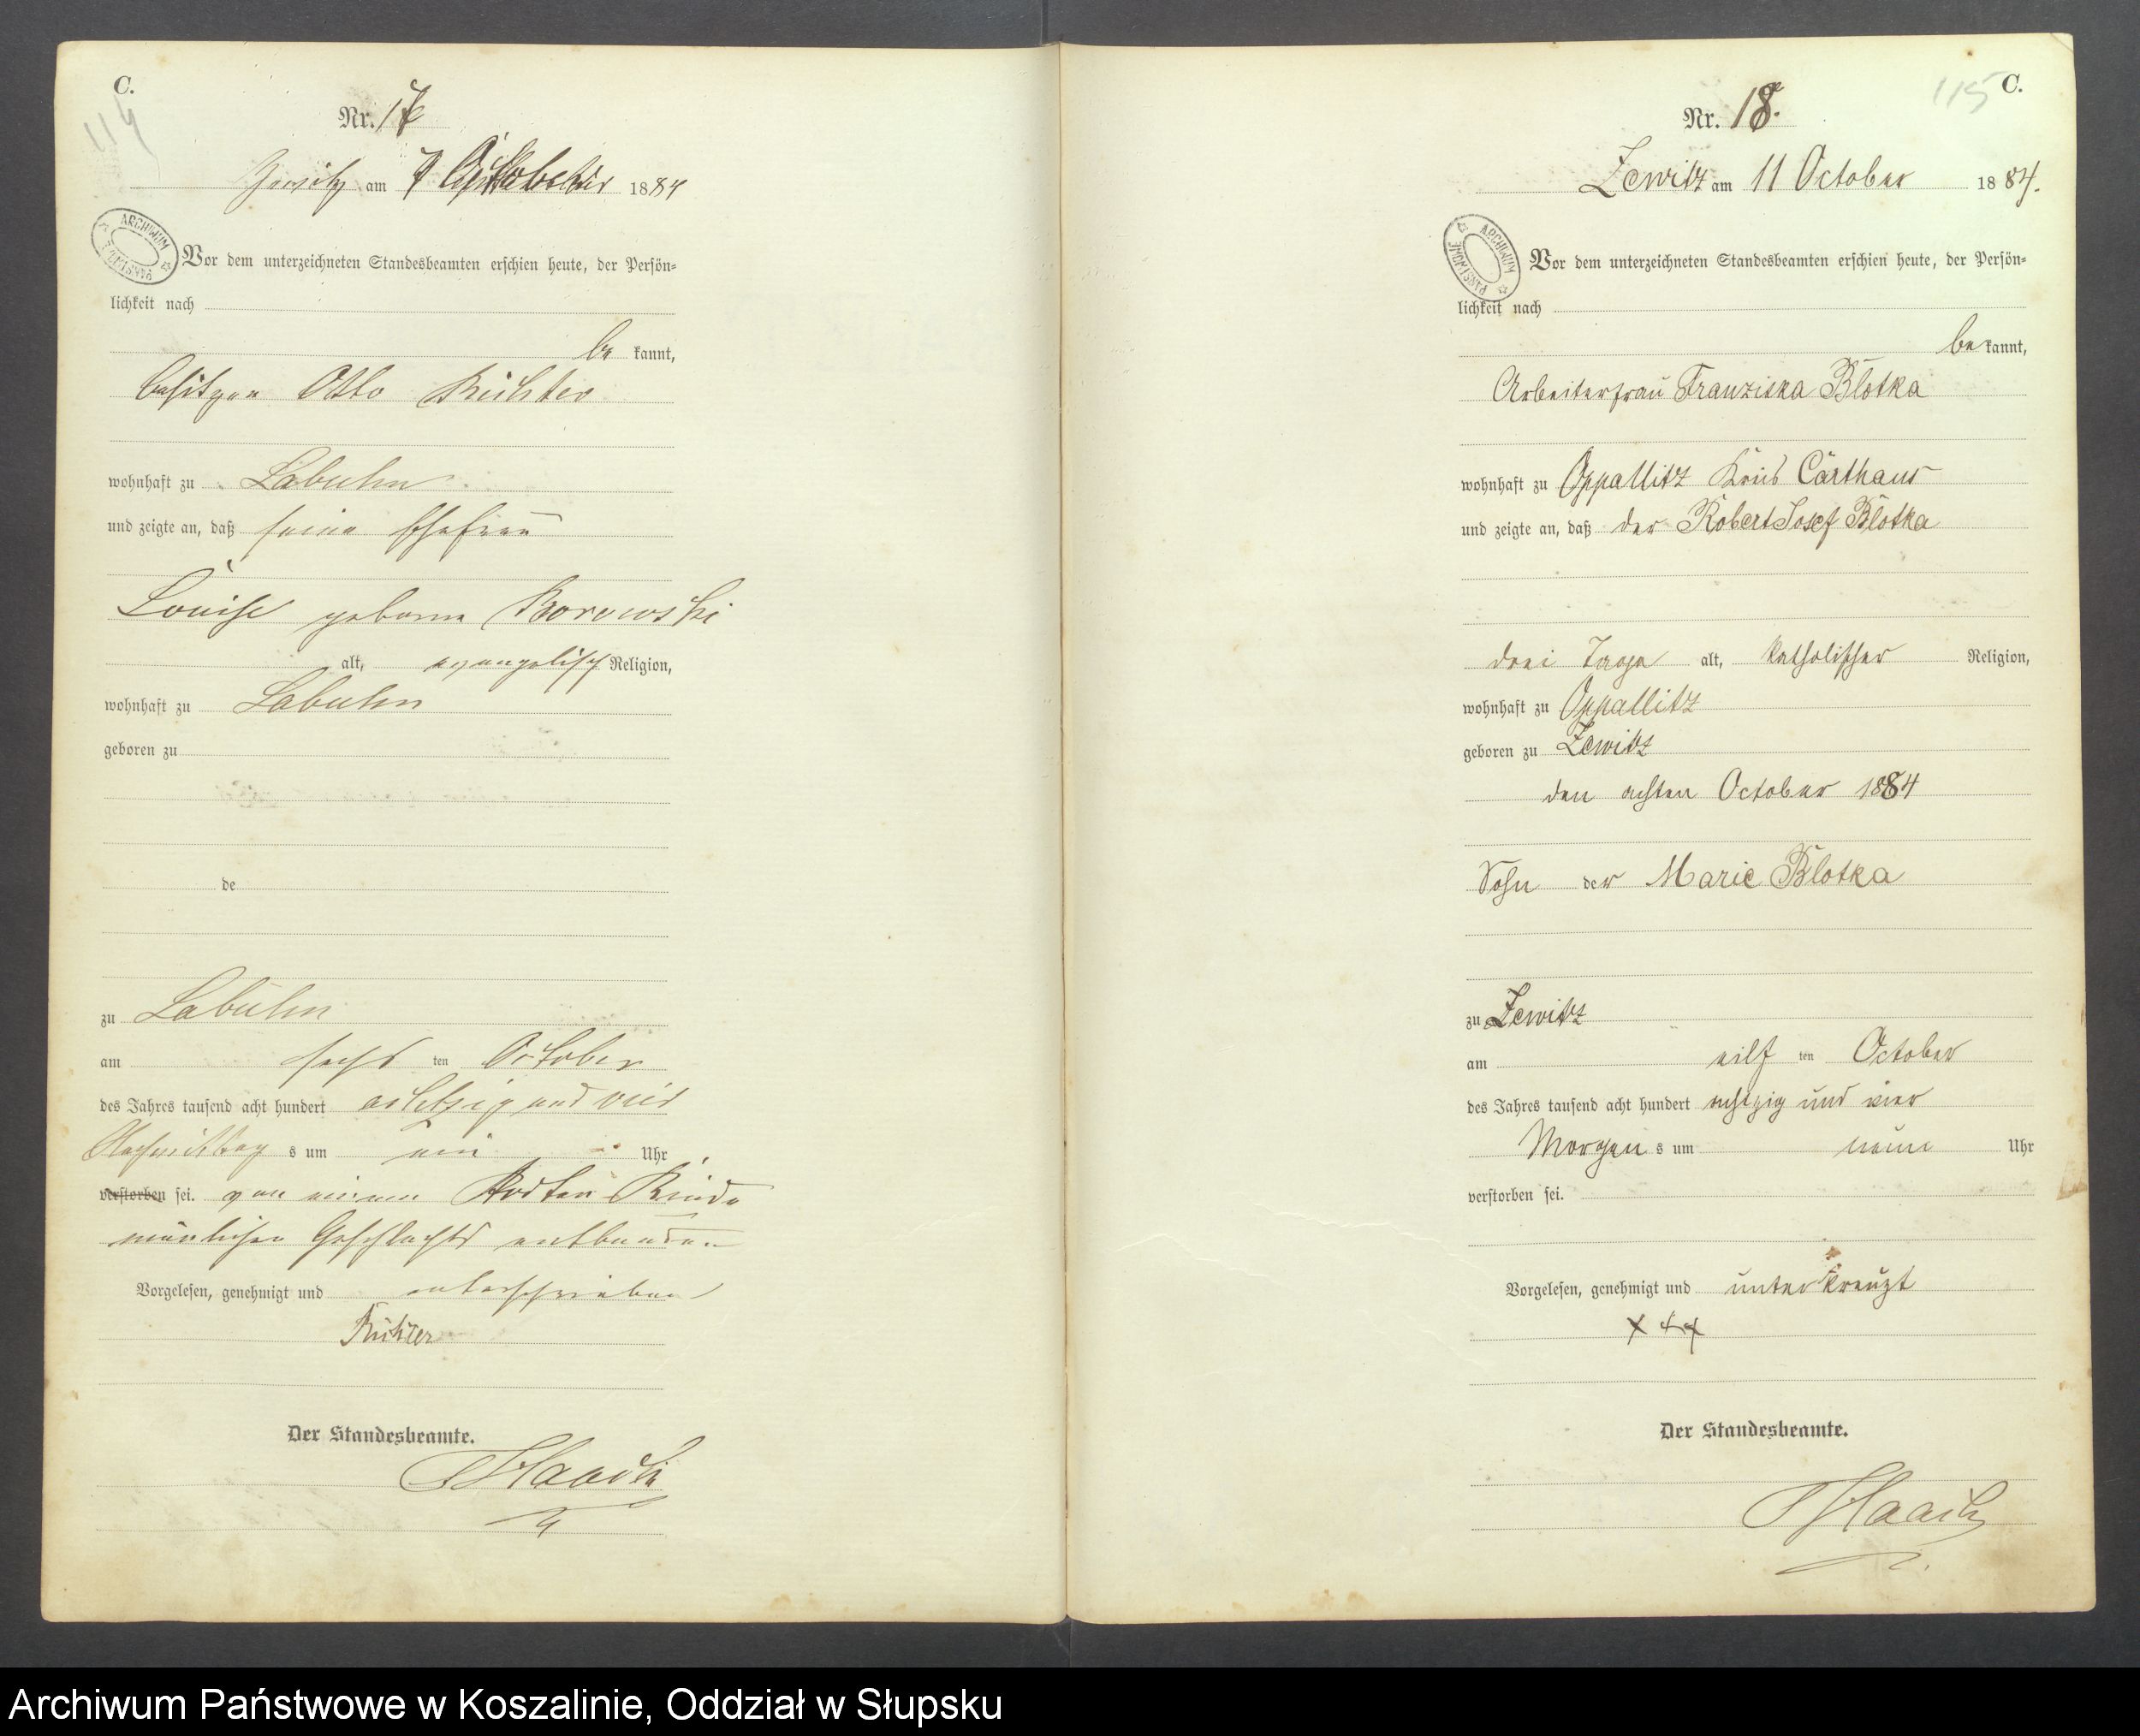 C.
114
Nr. 17
Zewitz am 7 October 1884
ARCHIWUM PAŃSTWOWE
Vor dem unterzeichneten Standesbeamten erschien heute, der Persön=
lichkeit nach
be kannt,
Besitzer Otto Richter
wohnhaft zu Labuhn
und zeigte an, daß seine Ehefrau
Louise geborne Borowski
alt, evangelisch Religion,
wohnhaft zu Labuhn
geboren zu
de
zu Labuhn
am sechs ten October
des Jahres tausend acht hundert achtzig und vier
Nachmittag s um ein Uhr
verstorben sei. von einem todten Kinde
mänlichen Geschlechts entbunden
Vorgelesen, genehmigt und unterschrieben
Richter
Der Standesbeamte.
Haack
115
C.
Nr. 18.
Zewitz am 11 October 1884.
ARCHIWUM PAŃSTWOWE
Vor dem unterzeichneten Standesbeamten erschien heute, der Persön=
lichkeit nach
be kannt,
Arbeiterfrau Franziska Blotka
wohnhaft zu Oppallitz Kreis Carthaus
und zeigte an, daß der Robert Josef Blotka
drei Tage alt, katholischer Religion,
wohnhaft zu Oppallitz
geboren zu Zewitz
den achten October 1884
Sohn der Marie Blotka
zu Zewitz
am eilf ten October
des Jahres tausend acht hundert achtzig und vier
Morgen s um neun Uhr
verstorben sei.
Vorgelesen, genehmigt und unterkreuzt
+ + +
Der Standesbeamte.
Haack
Archiwum Państwowe w Koszalinie, Oddział w Słupsku